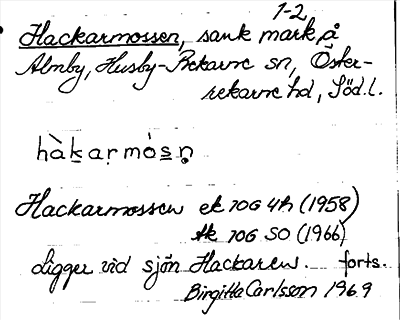 1-2
Hackarmossen, sank mark å
Almby, Husby-Rekarne sn, Öster-
rekarne hd, Söd.l.
hàkarmósn̥
Hackarmossen ek 10G 4h (1958)
tk 10G SO (1966)
Ligger vid sjön Hackaren. forts.
Birgitta Carlsson 1969